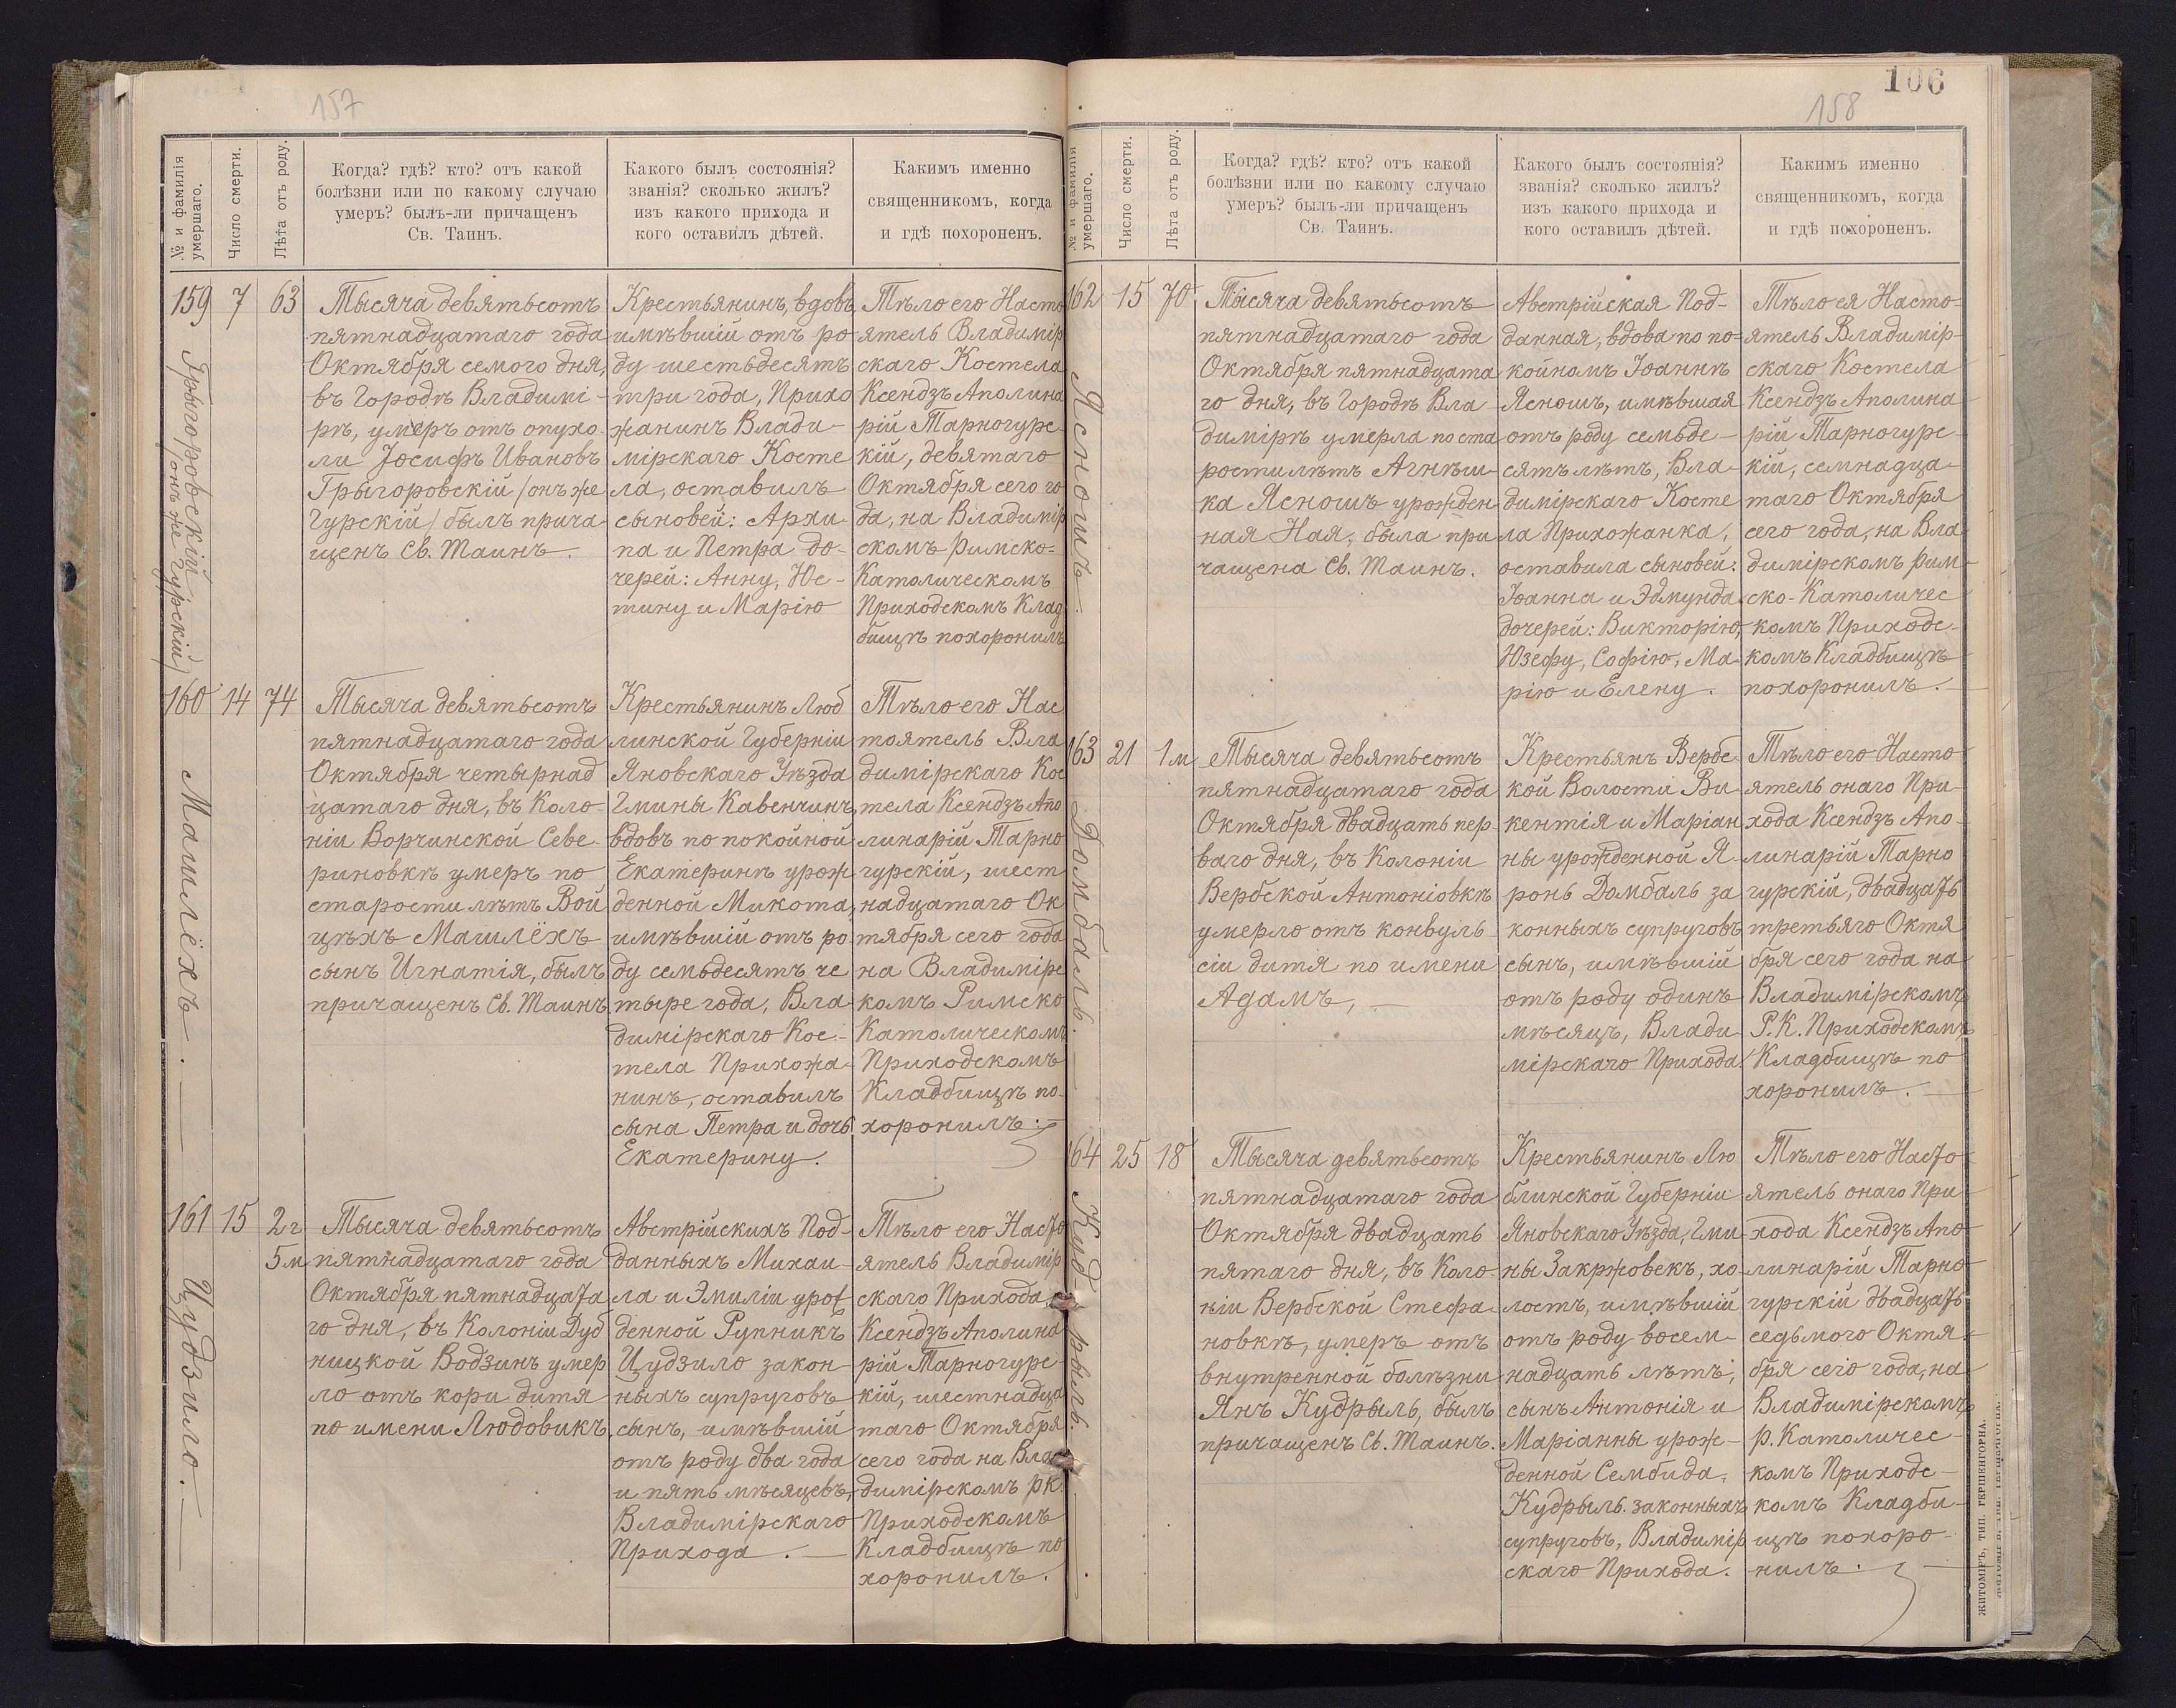 157
№ и фамилія умершаго.
Число смерти.
Лѣта отъ роду.
Когда? гдѣ? кто? отъ какой
болѣзни или по какому случаю
умеръ? былъ-ли причащенъ
Св. Таинъ.
Какого былъ состоянія?
званія? сколько жилъ?
изъ какого прихода и
кого оставилъ дѣтей.
Какимъ именно
священникомъ, когда
и гдѣ похороненъ.
159 7 63
Грыгоровскій
/онъ же Гурскій/
Тысяча девятьсотъ
пятнадцатаго года
Октября семого дня,
въ Городѣ Владимі-
рѣ, умеръ отъ опухо-
ли Іосифъ Ивановъ
Грыгоровскій /онъ же
Гурскій/ былъ прича-
щенъ Св. Таинъ.
Крестьянинъ, вдовъ,
имѣвшій отъ ро-
ду шестьдесятъ
три года, Прихо
жанинъ Влади-
мірскаго Косте
ла, оставилъ
сыновей: Архи-
па и Петра до-
черей: Анну, Юс-
тину и Марію
Тѣло его Насто
ятель Владимір
скаго Костела
Ксендзъ Аполина
рій Тарногурс-
кій, девятаго
Октября сего го
да, на Владимір
скомъ Римско-
Католическомъ
Приходскомъ Клад
бищѣ похоронилъ
160 14 74
Машлёхъ.
Тысяча девятьсотъ
пятнадцатаго года
Октября четырнад
цатаго дня, въ Коло-
ніи Ворчинской Севе-
риновкѣ умеръ по
старости лѣтъ Вой
цѣхъ Машлёхъ
сынъ Игнатія, былъ
причащенъ Св. Таинъ.
Крестьянинъ Люб
линской Губерніи
Яновскаго Уѣзда
Гмины Кавенчинъ,
вдовъ по покойной
Екатеринѣ урож
денной Микота,
имѣвшій отъ ро
ду семьдесятъ че
тыре года, Вла-
димірскаго Кос-
тела Прихожа-
нинъ, оставилъ
сына Петра и дочь
Екатерину.
Тѣло его Нас
тоятель Вла
димірскаго Кос
тела Ксендзъ Апо
линарій Тарно
гурскій, шест
надцатаго Ок
тября сего года
на Владимірс
комъ Римско
Католическомъ
Приходскомъ
Кладбищѣ по-
хоронилъ.
161 15 2г
5м
Цудзило.
Тысяча девятьсотъ
пятнадцатаго года
Октября пятнадцата
го дня, въ Колоніи Дуб
ницкой Водзинъ умер
ло отъ кори дитя
по имени Людовикъ.
Австрійскихъ Под-
данныхъ Михаи-
ла и Эмиліи урож
денной Рупникъ
Цудзило закон-
ныхъ супруговъ
сынъ, имѣвшій
отъ роду два года
и пять мѣсяцевъ,
Владимірскаго
Прихода.
Тѣло его Насто
ятель Владимір
скаго Прихода
Ксендзъ Аполина
рій Тарногурс-
кій, шестнадца
таго Октября
сего года на Вла
димірскомъ рк.
Приходскомъ
Кладбищѣ по
хоронилъ.
106
158
№ и фамилія умершаго.
Число смерти.
Лѣта отъ роду.
Когда? гдѣ? кто? отъ какой
болѣзни или по какому случаю
умеръ? былъ-ли причащенъ
Св. Таинъ.
Какого былъ состоянія?
званія? сколько жилъ?
изъ какого прихода и
кого оставилъ дѣтей.
Какимъ именно
священникомъ, когда
и гдѣ похороненъ.
162 15 70
Ясношъ.
Тысяча девятьсотъ
пятнадцатаго года
Октября пятнадцата
го дня, въ Городѣ Вла
димірѣ умерла по ста
рости лѣтъ Агнѣш-
ка Ясношъ урожден
ная Ная, была при
чащена Св. Таинъ.
Австрійская Под-
данная, вдова по по-
койномъ Іоаннѣ
Ясношъ, имѣвшая
отъ роду семьде-
сятъ лѣтъ, Вла-
димірскаго Косте
ла Прихожанка,
оставила сыновей:
Іоанна и Эдмунда
дочерей: Викторію,
Юзефу, Софію, Ма-
рію и Елену.
Тѣло ея Насто-
ятель Владимір-
скаго Костела
Ксендзъ Аполина
рій Тарногурс-
кій, семнадца-
таго Октября
сего года, на Вла
димірскомъ Рим-
ско-Католичес
комъ Приходс-
комъ Кладбищѣ
похоронилъ.
163 21 1м
Домбаль.
Тысяча девятьсотъ
пятнадцатаго года
Октября двадцать пер-
ваго дня, въ Колоніи
Вербской Антоніовкѣ
умерло отъ конвуль-
сіи дитя по имени
Адамъ,
Крестьянъ Вербс
кой Волости Ви-
кентія и Маріан
ны урожденной Я-
ронь Домбаль за
конныхъ супруговъ
сынъ, имѣвшій
отъ роду одинъ
мѣсяцъ, Влади-
мірскаго Прихода.
Тѣло его Насто
ятель онаго При-
хода Ксендзъ Апо-
линарій Тарно
гурскій, двадцать
третьяго Октя
бря сего года на
Владимірскомъ
Р.К. Приходскомъ
Кладбищѣ по
хоронилъ.
164 25 18
Кудрыль.
Тысяча девятьсотъ
пятнадцатаго года
Октября двадцать
пятаго дня, въ Коло-
ніи Вербской Стефа-
новкѣ, умеръ отъ
внутренной болѣзни
Янъ Кудрыль, былъ
причащенъ Св. Таинъ.
Крестьянинъ Лю
блинской Губерніи
Яновскаго Уѣзда, Гми
ны Закржовекъ, хо-
лостъ, имѣвшій
отъ роду восем-
надцать лѣтъ,
сынъ Антонія и
Маріанны урож-
денной Сембида,
Кудрыль законныхъ
супруговъ, Владимір
скаго Прихода.
Тѣло его Насто
ятель онаго При
хода Ксендзъ Апо
линарій Тарно
гурскій двадцать
седьмого Октя-
бря сего года, на
Владимірскомъ
р. Католичес-
комъ Приходс-
комъ Кладби-
щѣ похоро-
нилъ.
ЖИТОМІРЪ, ТИП. ГЕРШЕНГОРНА.